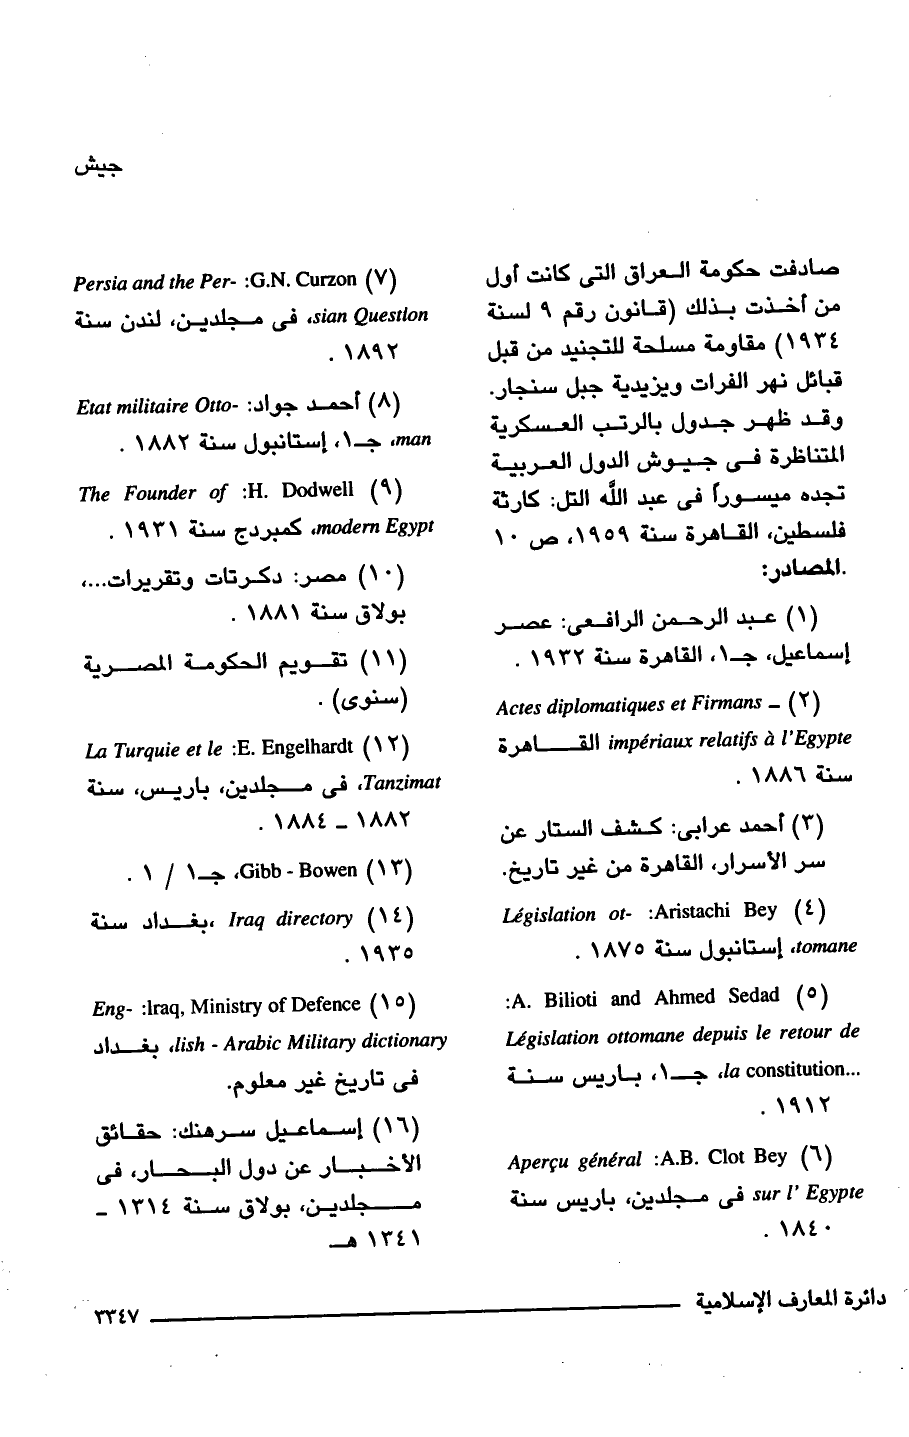 جيش
صادفت حكومة العراق التى كانت أول
من أخذت بذلك (قانون رقم ٩ لسنة
١٩٣٤) مقاومة مسلحة للتجنيد من قبل
قبائل نهر الفرات ويزيدية جبل سنجار.
وقد ظهر جدول بالرتب العسكرية
المتناظرة فى جيوش الدول العربية
تجده ميسوراً فى عبد الله التل: كارثة
فلسطين، القاهرة سنة ١٩٥٩، ص ١٠
.المصادر:
(١) عبد الرحمن الرافعى: عصر
إسماعيل، جـ١، القاهرة سنة ١٩٣٢ .
(٢) – Actes diplomatiques et Firmans
impériaux relatifs à l’Egypte القاهرة
سنة ١٨٨٦ .
(٣) أحمد عرابى: كشف الستار عن
سر الأسرار، القاهرة من غير تاريخ.
(٤) Aristachi Bey: Législation ot-
tomane، إستانبول سنة ١٨٧٥ .
(٥) A. Bilioti and Ahmed Sedad:
Législation ottomane depuis le retour de
la constitution...، جـ١، باريس سنة
١٩١٢ .
(٦) A.B. Clot Bey: Aperçu général
sur l’ Egypte فى مجلدين، باريس سنة
١٨٤٠ .
(٧) G.N. Curzon: Persia and the Per-
sian Question، فى مجلدين، لندن سنة
١٨٩٢ .
(٨) أحمد جواد: Etat militaire Otto-
man، جـ١، إستانبول سنة ١٨٨٢ .
(٩) H. Dodwell: The Founder of
modern Egypt، كمبردج سنة ١٩٣١ .
(١٠) مصر: دكرتات وتقريرات...،
بولاق سنة ١٨٨١ .
(١١) تقويم الحكومة المصرية
(سنوى) .
(١٢) E. Engelhardt: La Turquie et le
Tanzimat، فى مجلدين، باريس، سنة
١٨٨٢ – ١٨٨٤ .
(١٣) Gibb - Bowen، جـ١ / ١ .
(١٤) Iraq directory ،بغداد سنة
١٩٣٥ .
(١٥) Iraq, Ministry of Defence: Eng-
lish - Arabic Military dictionary، بغداد
فى تاريخ غير معلوم.
(١٦) إسماعيل سرهنك: حقائق
الأخبار عن دول البحار، فى
مجلدين، بولاق سنة ١٣١٤ –
١٣٤١ هـ
دائرة المعارف الإسلامية
٣٣٤٧